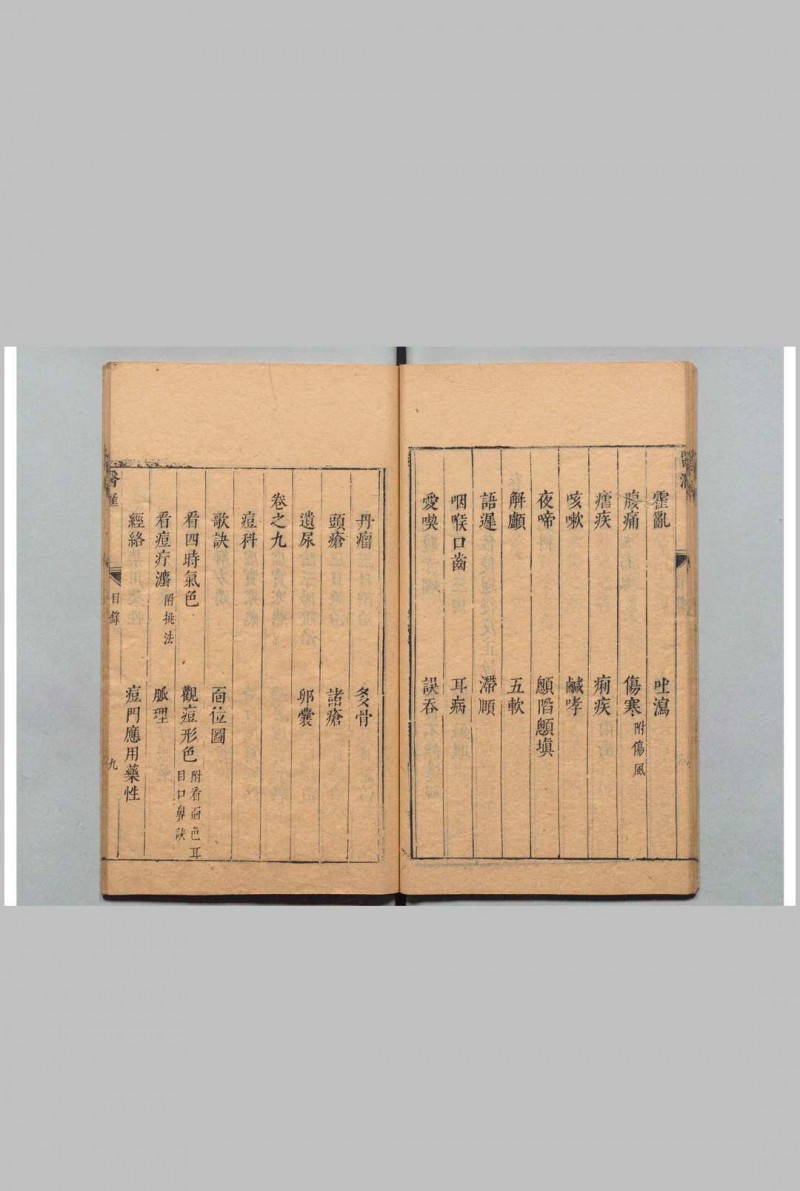 霍亂 吐瀉
腹痛 傷寒附傷風
瘧疾 痢疾
咳嗽 鹹哮
夜啼 顖陷顖塡
解顱 五軟
語遲 滯頤
咽喉口齒 耳病
愛喫 誤吞
丹瘤 多骨
頭瘡 諸瘡
遺尿 卵囊
卷之九
痘科
歌訣 面位圖
看四時氣色 觀痘形色附看面色耳目口鼻訣
看痘疔瀉附挑法 脈理
經絡 痘門應用藥性
目錄 九